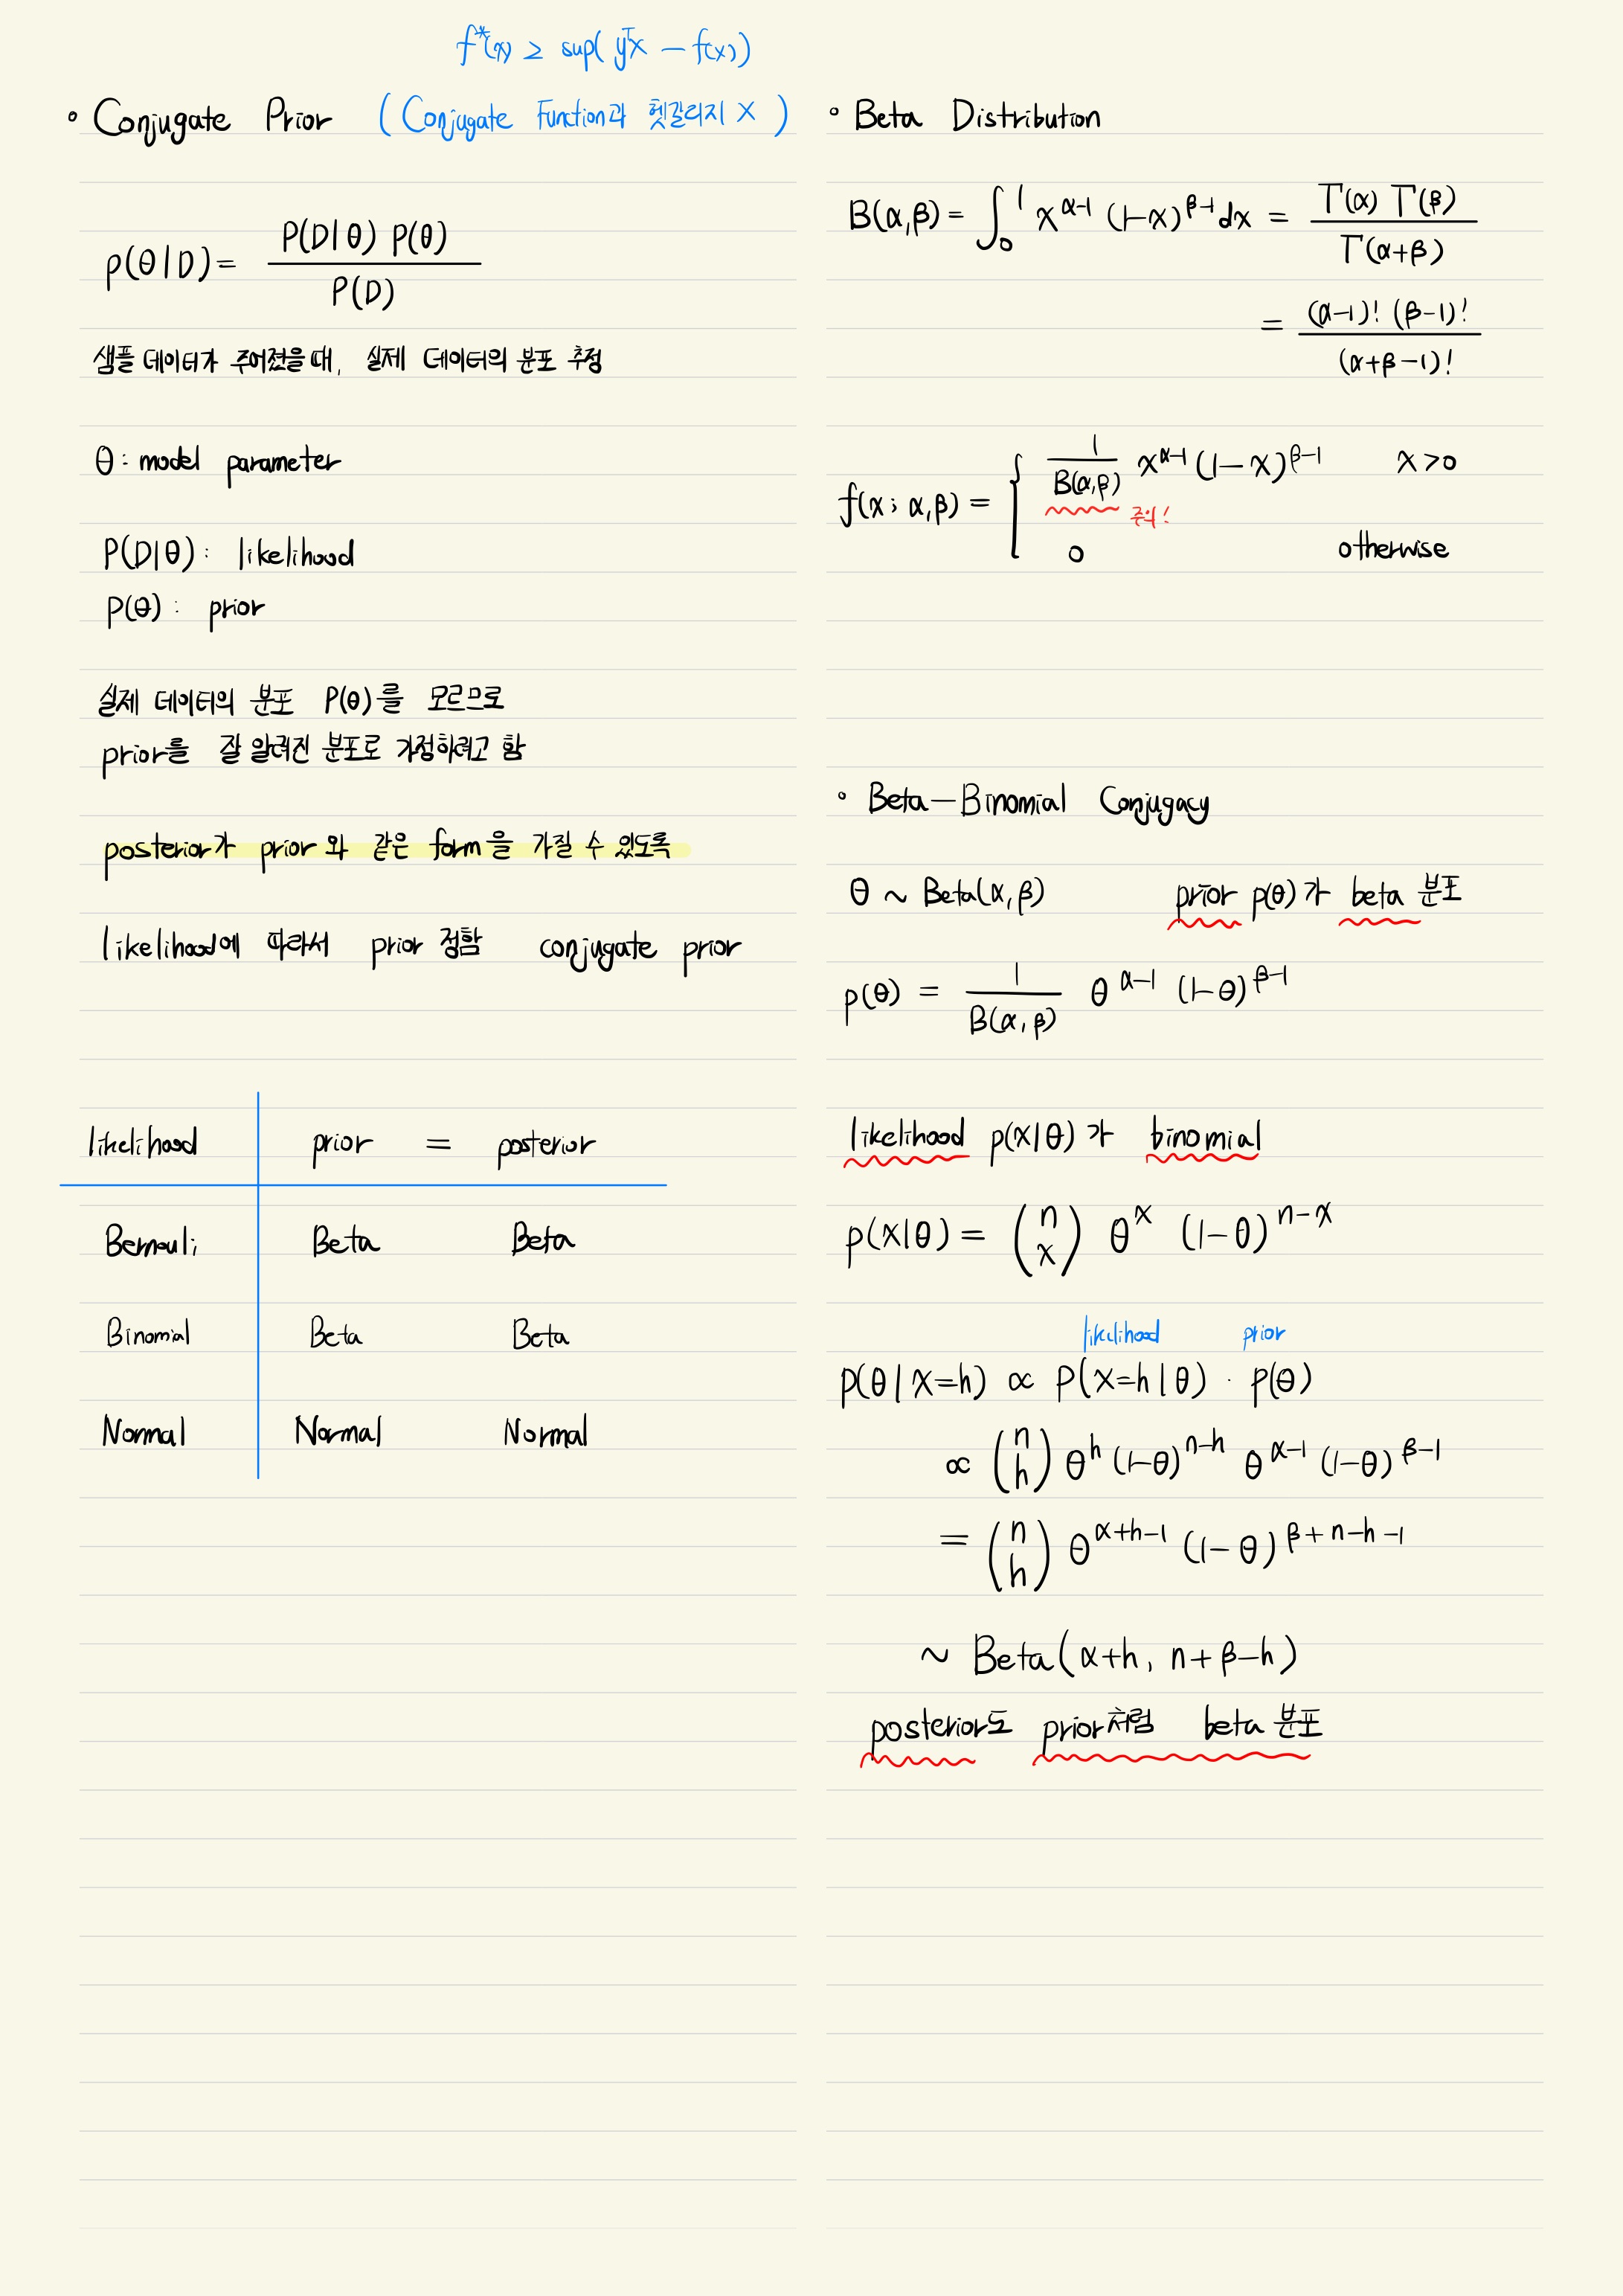 f*(x) ≥ sup( yᵀx − f(x))
◦ Conjugate Prior ( Conjugate Function과 헷갈리지 X )
p(θ|D) = P(D|θ) P(θ) / P(D)
샘플 데이터가 주어졌을 때, 실제 데이터의 분포 추정
θ : model parameter
P(D|θ) : likelihood
P(θ) : prior
실제 데이터의 분포 P(θ)를 모르므로
prior를 잘 알려진 분포로 가정하려고 함
posterior가 prior와 같은 form을 가질 수 있도록
likelihood에 따라서 prior 정함 conjugate prior
likelihood prior = posterior
Bernouli Beta Beta
Binomial Beta Beta
Normal Normal Normal
◦ Beta Distribution
B(α,β) = ∫₀¹ x^(α-1) (1-x)^(β-1) dx = Γ(α) Γ(β) / Γ(α+β)
= (α-1)! (β-1)! / (α+β-1)!
f(x ; α,β) = { 1 / B(α,β) x^(α-1) (1-x)^(β-1) x>0
주의!
0 otherwise
◦ Beta-Binomial Conjugacy
θ ~ Beta(α,β) prior p(θ)가 beta 분포
p(θ) = 1 / B(α,β) θ^(α-1) (1-θ)^(β-1)
likelihood p(x|θ)가 binomial
p(x|θ) = (n x) θ^x (1-θ)^(n-x)
likelihood prior
p(θ|x=h) ∝ P(x=h|θ) · p(θ)
∝ (n h) θ^h (1-θ)^(n-h) θ^(α-1) (1-θ)^(β-1)
= (n h) θ^(α+h-1) (1-θ)^(β+n-h-1)
~ Beta(α+h, n+β-h)
posterior도 prior처럼 beta 분포